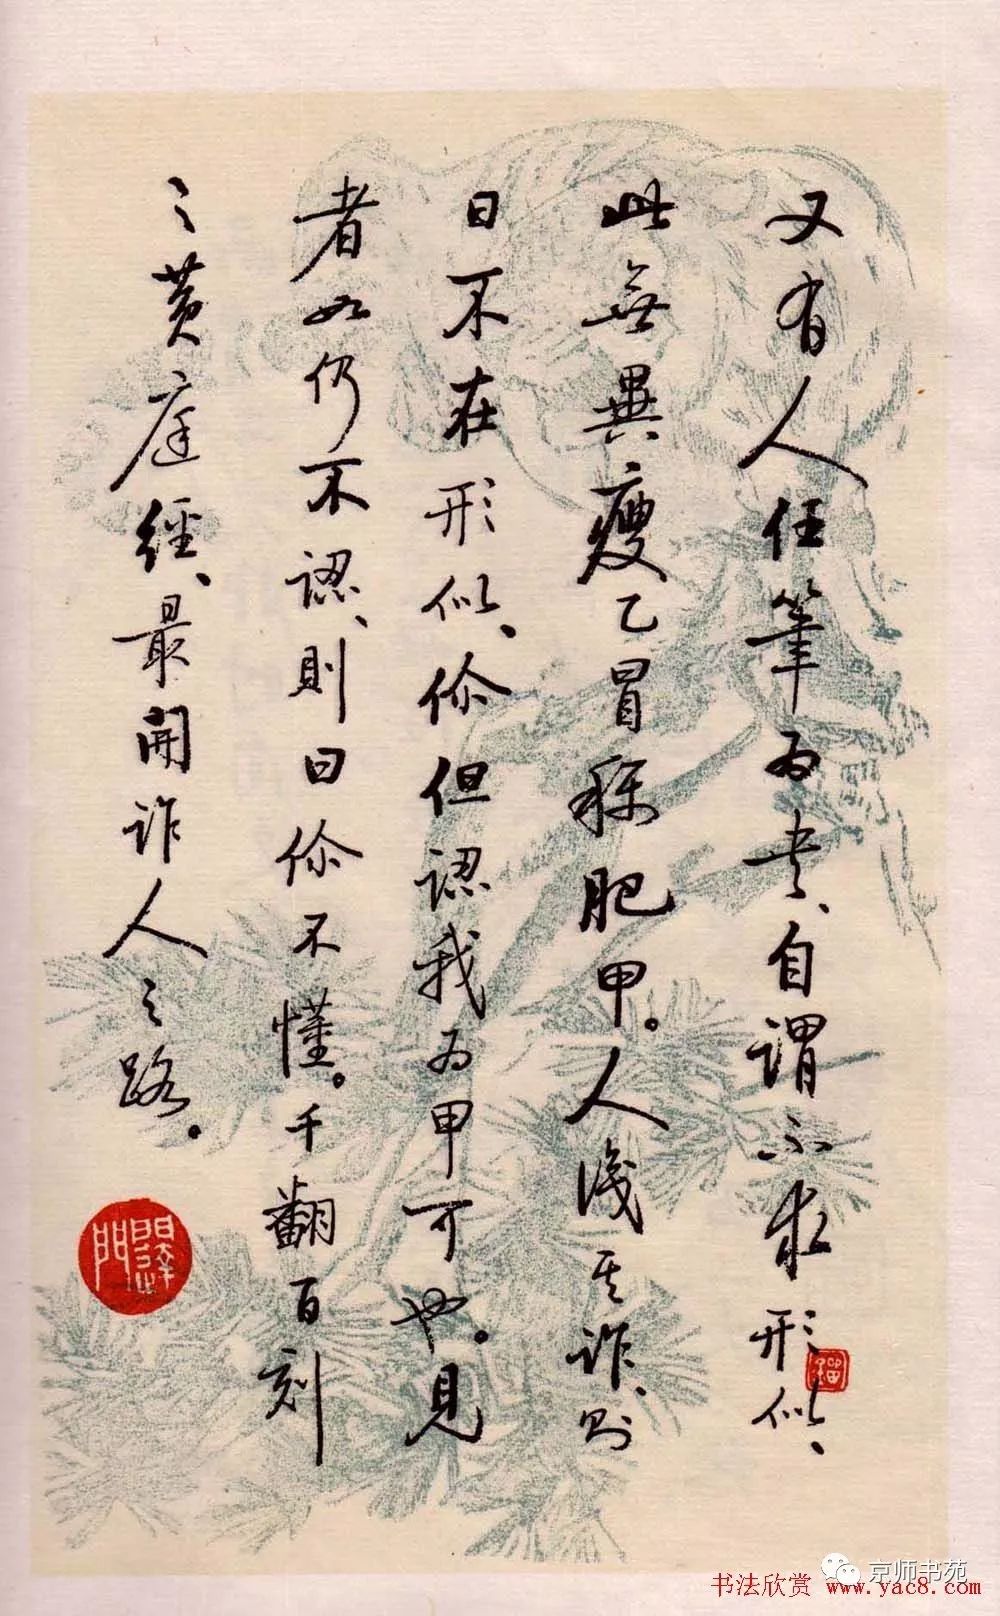 又有人任筆为书、自謂不求形似、
此無異瘦乙冒称肥甲。人識其詐、则
曰不在形似、你但認我为甲可也。見
者如仍不認、則曰你不懂。千翻百刻
之黄庭經、最開詐人之路。
京师书苑
书法欣赏 www.yac8.com